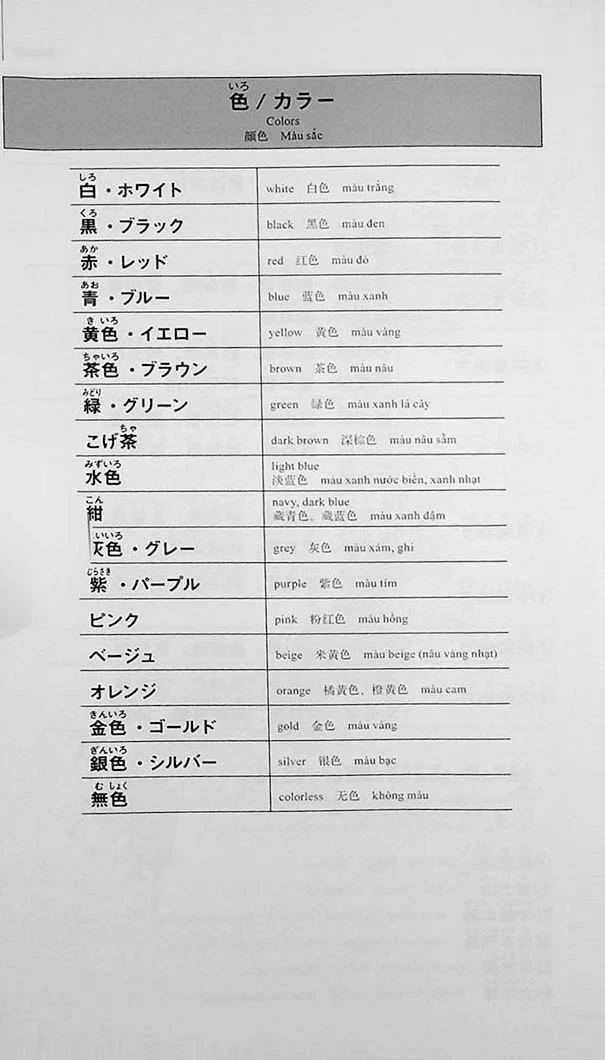 いろ
色 / カラー
Colors
颜色 Màu sắc
しろ
白・ホワイト white 白色 màu trắng
くろ
黒・ブラック black 黑色 màu đen
あか
赤・レッド red 红色 màu đỏ
あお
青・ブルー blue 蓝色 màu xanh
き いろ
黄色・イエロー yellow 黄色 màu vàng
ちゃいろ
茶色・ブラウン brown 茶色 màu nâu
みどり
緑・グリーン green 绿色 màu xanh lá cây
ちゃ
こげ茶 dark brown 深棕色 màu nâu sẫm
みずいろ
水色 light blue
淡蓝色 màu xanh nước biển, xanh nhạt
こん
紺 navy, dark blue
藏青色、藏蓝色 màu xanh đậm
いいろ
灰色・グレー grey 灰色 màu xám, ghi
むらさき
紫・パープル purple 紫色 màu tím
ピンク pink 粉红色 màu hồng
ベージュ beige 米黄色 màu beige (nâu vàng nhạt)
オレンジ orange 橘黄色、橙黄色 màu cam
きんいろ
金色・ゴールド gold 金色 màu vàng
ぎんいろ
銀色・シルバー silver 银色 màu bạc
む しょく
無色 colorless 无色 không màu